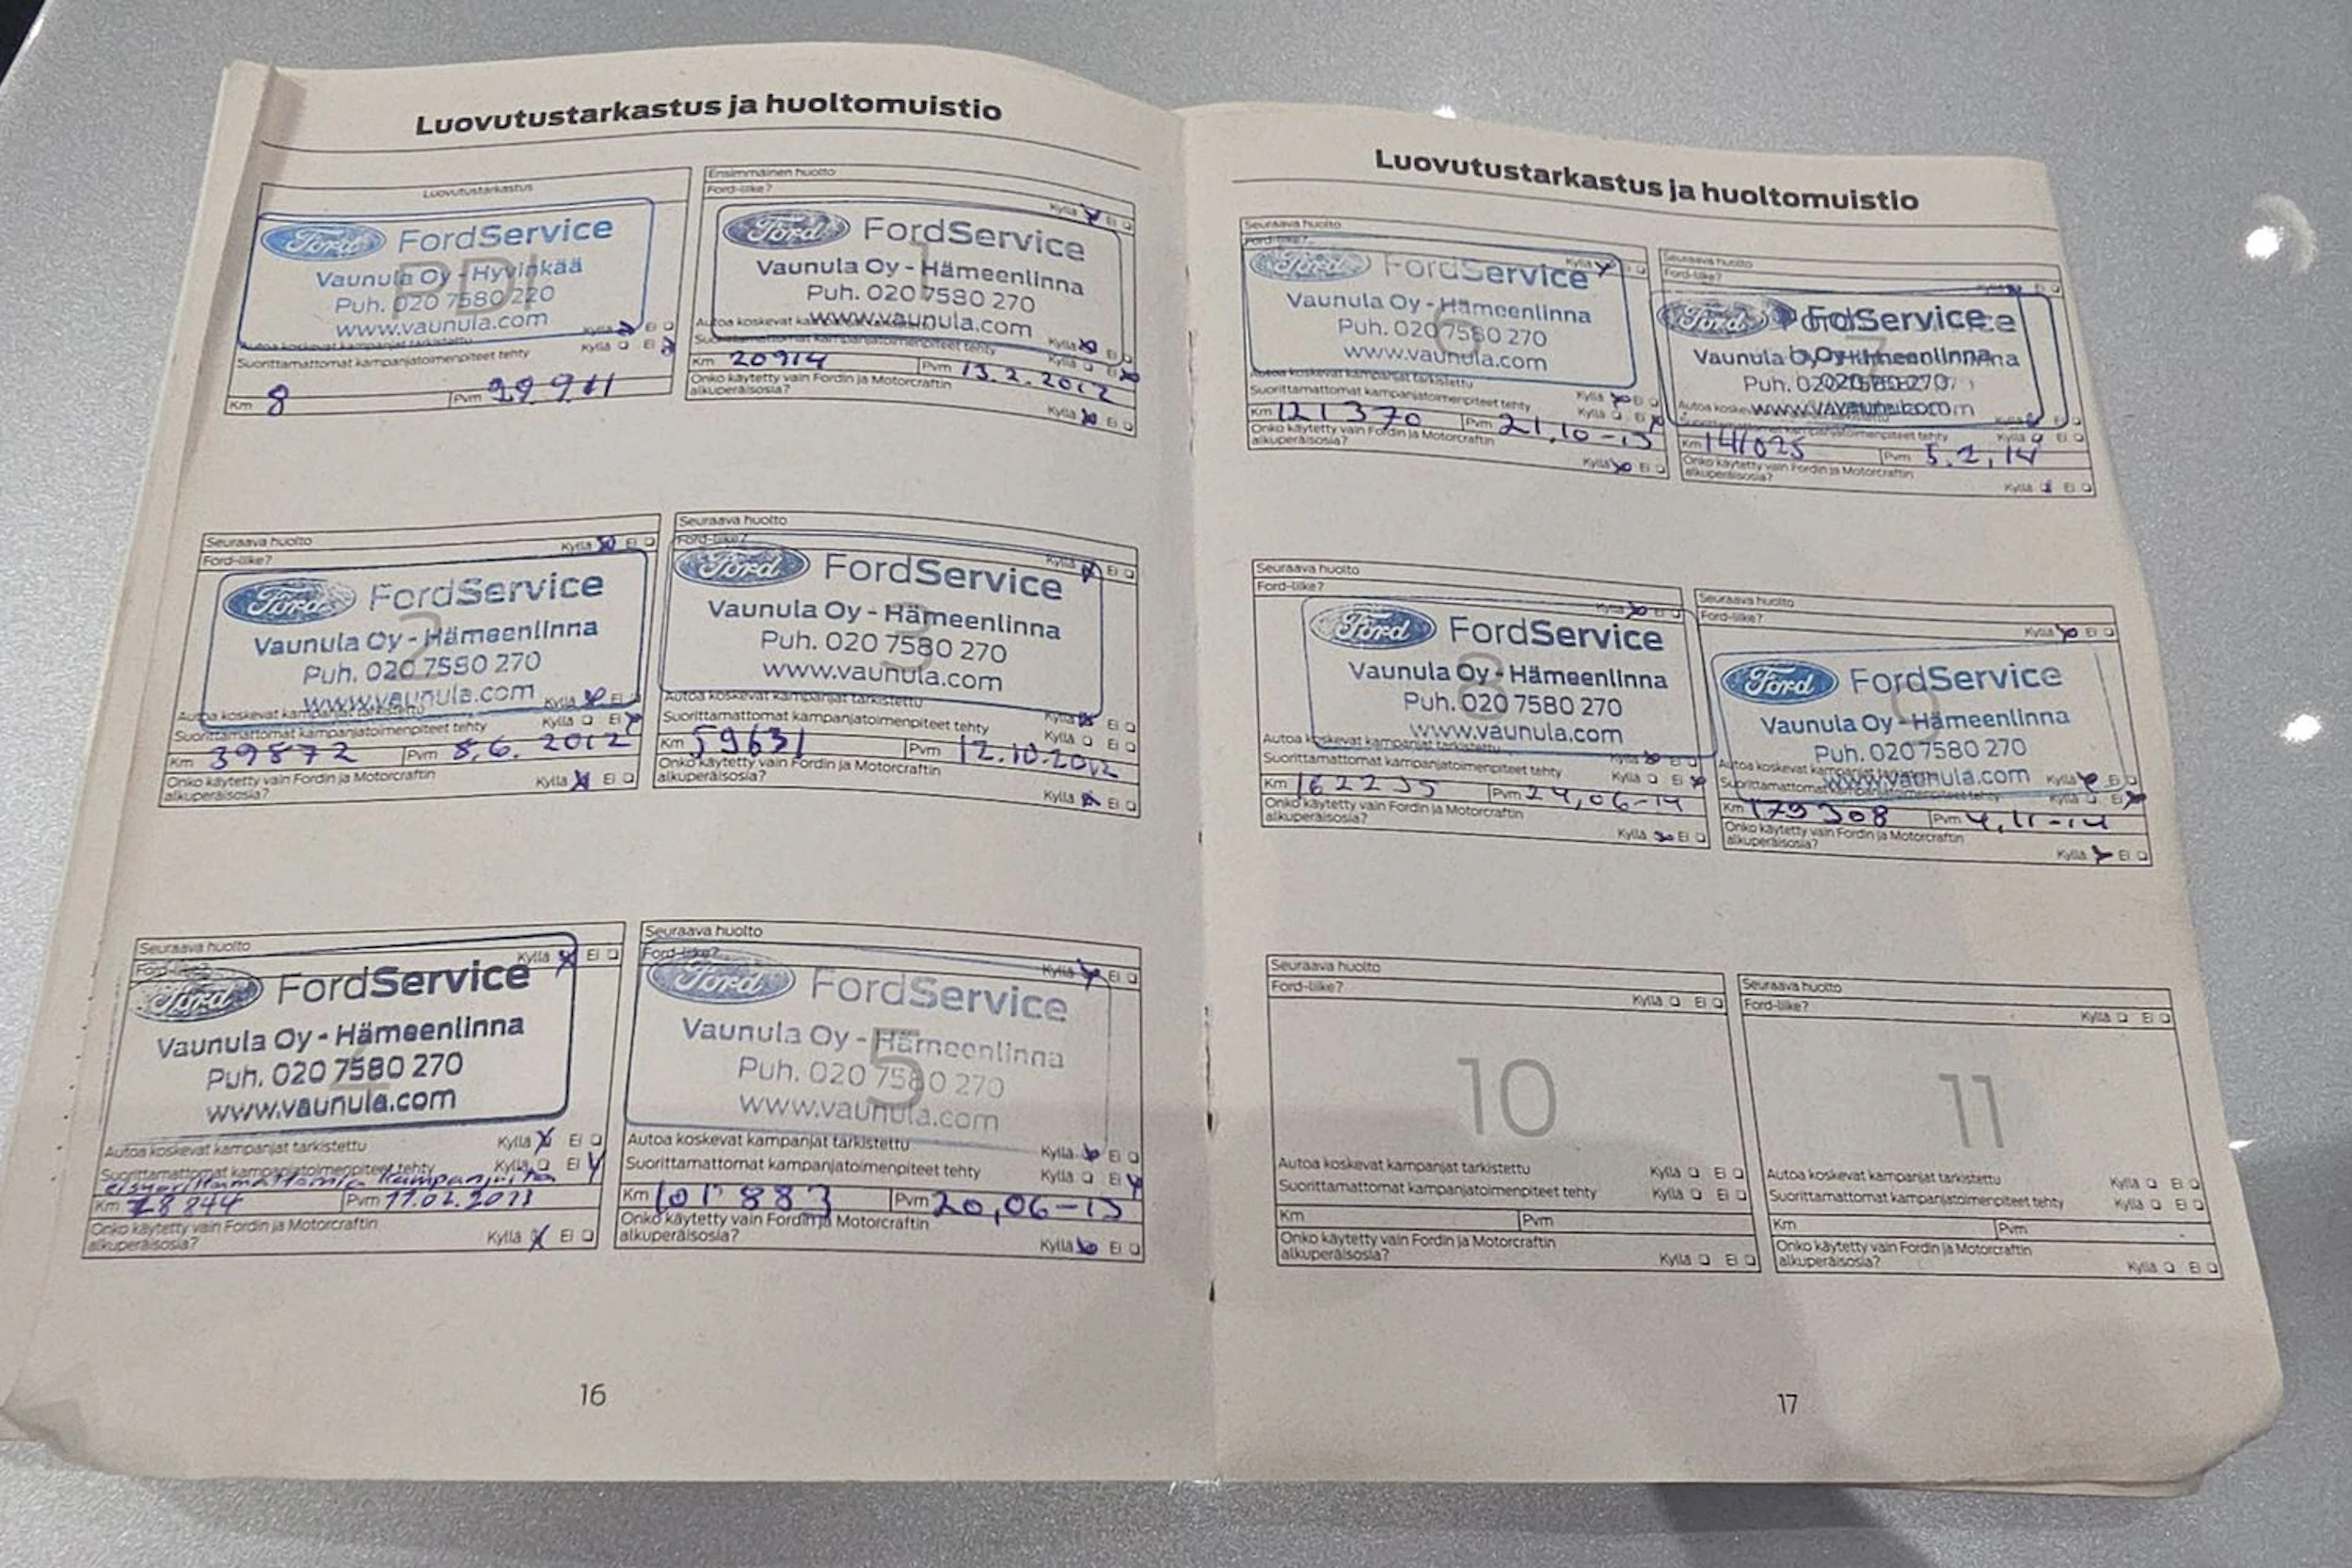 Luovutustarkastus ja huoltomuistio
Luovutustarkastus
Ford FordService
PDI
Vaunula Oy - Hyvinkää
Puh. 020 7580 220
www.vaunula.com
Kyllä Ei
Autoa koskevat kampanjat tarkistettu
Suorittamattomat kampanjatoimenpiteet tehty Kyllä Ei
Km 8 Pvm 29 9 11
Ensimmäinen huolto
Ford-liike?
Kyllä Ei
Ford FordService
1
Vaunula Oy - Hämeenlinna
Puh. 020 7580 270
www.vaunula.com
Autoa koskevat kampanjat tarkistettu Kyllä
Suorittamattomat kampanjatoimenpiteet tehty Kyllä Ei
Km 20914 Pvm 13.2.2012
Onko käytetty vain Fordin ja Motorcraftin
alkuperäisosia? Kyllä Ei
Seuraava huolto
Ford-liike? Kyllä Ei
Ford FordService
2
Vaunula Oy - Hämeenlinna
Puh. 020 7580 270
www.vaunula.com
Autoa koskevat kampanjat tarkistettu Kyllä Ei
Suorittamattomat kampanjatoimenpiteet tehty Kyllä Ei
Km 39872 Pvm 8.6. 2012
Onko käytetty vain Fordin ja Motorcraftin
alkuperäisosia? Kyllä Ei
Seuraava huolto
Ford-liike? Kyllä Ei
Ford FordService
3
Vaunula Oy - Hämeenlinna
Puh. 020 7580 270
www.vaunula.com
Autoa koskevat kampanjat tarkistettu Kyllä Ei
Suorittamattomat kampanjatoimenpiteet tehty Kyllä Ei
Km 59631 Pvm 12.10.2012
Onko käytetty vain Fordin ja Motorcraftin
alkuperäisosia? Kyllä Ei
Seuraava huolto
Ford-liike? Kyllä Ei
Ford FordService
Vaunula Oy - Hämeenlinna
Puh. 020 7580 270
www.vaunula.com
Autoa koskevat kampanjat tarkistettu Kyllä Ei
Suorittamattomat kampanjatoimenpiteet tehty Kyllä Ei
Km 78244 Pvm 11.02.2013
Onko käytetty vain Fordin ja Motorcraftin
alkuperäisosia? Kyllä Ei
Seuraava huolto
Ford-liike? Kyllä Ei
Ford FordService
5
Vaunula Oy - Hämeenlinna
Puh. 020 7580 270
www.vaunula.com
Autoa koskevat kampanjat tarkistettu Kyllä Ei
Suorittamattomat kampanjatoimenpiteet tehty Kyllä Ei
Km 101883 Pvm 20,06-13
Onko käytetty vain Fordin ja Motorcraftin
alkuperäisosia? Kyllä Ei
16
Luovutustarkastus ja huoltomuistio
Seuraava huolto
Ford-liike? Kyllä
Ford FordService
6
Vaunula Oy - Hämeenlinna
Puh. 020 7580 270
www.vaunula.com
Autoa koskevat kampanjat tarkistettu Kyllä Ei
Suorittamattomat kampanjatoimenpiteet tehty Kyllä Ei
Km 121370 Pvm 21,10-13
Onko käytetty vain Fordin ja Motorcraftin
alkuperäisosia? Kyllä Ei
Seuraava huolto
Ford-liike?
Ford FordService
7
Vaunula Oy - Hämeenlinna
Puh. 020 7580 270
www.vaunula.com
kampanjatoimenpiteet tehty Kyllä Ei
Km 141025 Pvm 5.2,14
Onko käytetty vain Fordin ja Motorcraftin
alkuperäisosia? Kyllä Ei
Seuraava huolto
Ford-liike?
Kyllä Ei
Ford FordService
8
Vaunula Oy - Hämeenlinna
Puh. 020 7580 270
www.vaunula.com
Autoa koskevat kampanjat tarkistettu Kyllä Ei
Suorittamattomat kampanjatoimenpiteet tehty Kyllä Ei
Km 162235 Pvm 24,06-14
Onko käytetty vain Fordin ja Motorcraftin
alkuperäisosia? Kyllä Ei
Seuraava huolto
Ford-liike?
Kyllä Ei
Ford FordService
9
Vaunula Oy - Hämeenlinna
Puh. 020 7580 270
www.vaunula.com
Autoa koskevat kampanjat tarkistettu Kyllä Ei
Suorittamattomat kampanjatoimenpiteet tehty Kyllä Ei
Km 179308 Pvm 4,11-14
Onko käytetty vain Fordin ja Motorcraftin
alkuperäisosia? Kyllä Ei
Seuraava huolto
Ford-liike?
Kyllä Ei
10
Autoa koskevat kampanjat tarkistettu Kyllä Ei
Suorittamattomat kampanjatoimenpiteet tehty Kyllä Ei
Km Pvm
Onko käytetty vain Fordin ja Motorcraftin
alkuperäisosia? Kyllä Ei
Seuraava huolto
Ford-liike?
Kyllä Ei
11
Autoa koskevat kampanjat tarkistettu Kyllä Ei
Suorittamattomat kampanjatoimenpiteet tehty Kyllä Ei
Km Pvm
Onko käytetty vain Fordin ja Motorcraftin
alkuperäisosia? Kyllä Ei
17